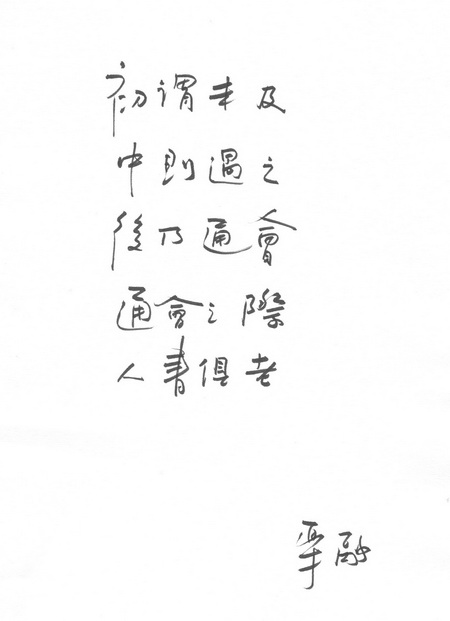 初谓未及
中则過之
後乃通會
通會之際
人書俱老